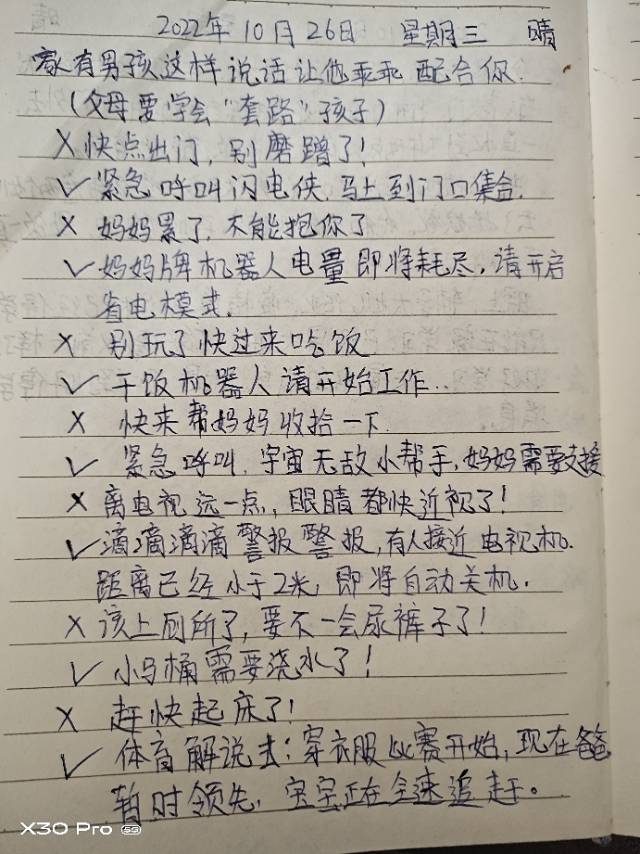 2022年10月26日 星期三 晴
家有男孩这样说话让他乖乖配合你.
(父母要学会"套路"孩子)
X 快点出门,别磨蹭了!
✓ 紧急呼叫闪电侠.马上到门口集合.
X 妈妈累了.不能抱你了
✓ 妈妈牌机器人电量即将耗尽,请开启
省电模式.
X 别玩了快过来吃饭
✓ 干饭机器人请开始工作...
X 快来帮妈妈收拾一下.
✓ 紧急呼叫.宇宙无敌小帮手,妈妈需要支援
X 离电视远一点,眼睛都快近视了!
✓ 滴滴滴滴警报警报,有人接近电视机.
距离已经小于2米,即将自动关机.
X 该上厕所了,要不一会尿裤子了!
✓ 小马桶需要浇水了!
X 赶快起床了!
✓ 体育解说去:穿衣服比赛开始,现在爸爸
暂时领先,宝宝正在全速追赶。
X30 Pro 5G